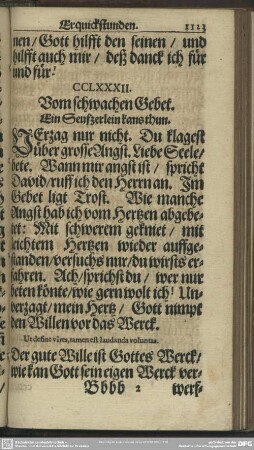 Erquickstunden. 1123
nen/Gott hilfft den seinen/ und
hilfft auch mir/ deß danck ich für
und für!
CCLXXXII.
Vom schwachen Gebet.
Ein Seufzerlein kans thun.
VErzag nur nicht. Du klagest
über grosse Angst. Liebe Seele/
bete. Wann mir angst ist/ spricht
David/ruff ich den Herrn an. Im
Gebet ligt Trost. Wie manche
Angst hab ich vom Hertzen abgebe-
tet: Mit schwerem gekniet/ mit
leichtem Hertzen wieder auffge-
standen/versuchs nur/du wirsts er-
fahren. Ach/sprichst du/ wer nur
beten könte/wie gern wolt ich! Un-
verzagt/mein Hertz/ Gott nimpt
den Willen vor das Werck.
Ut desint vires, tamen est laudanda voluntas.
Der gute Wille ist Gottes Werck/
wie kan Gott sein eigen Werck ver-
Bbbb 2 werf-